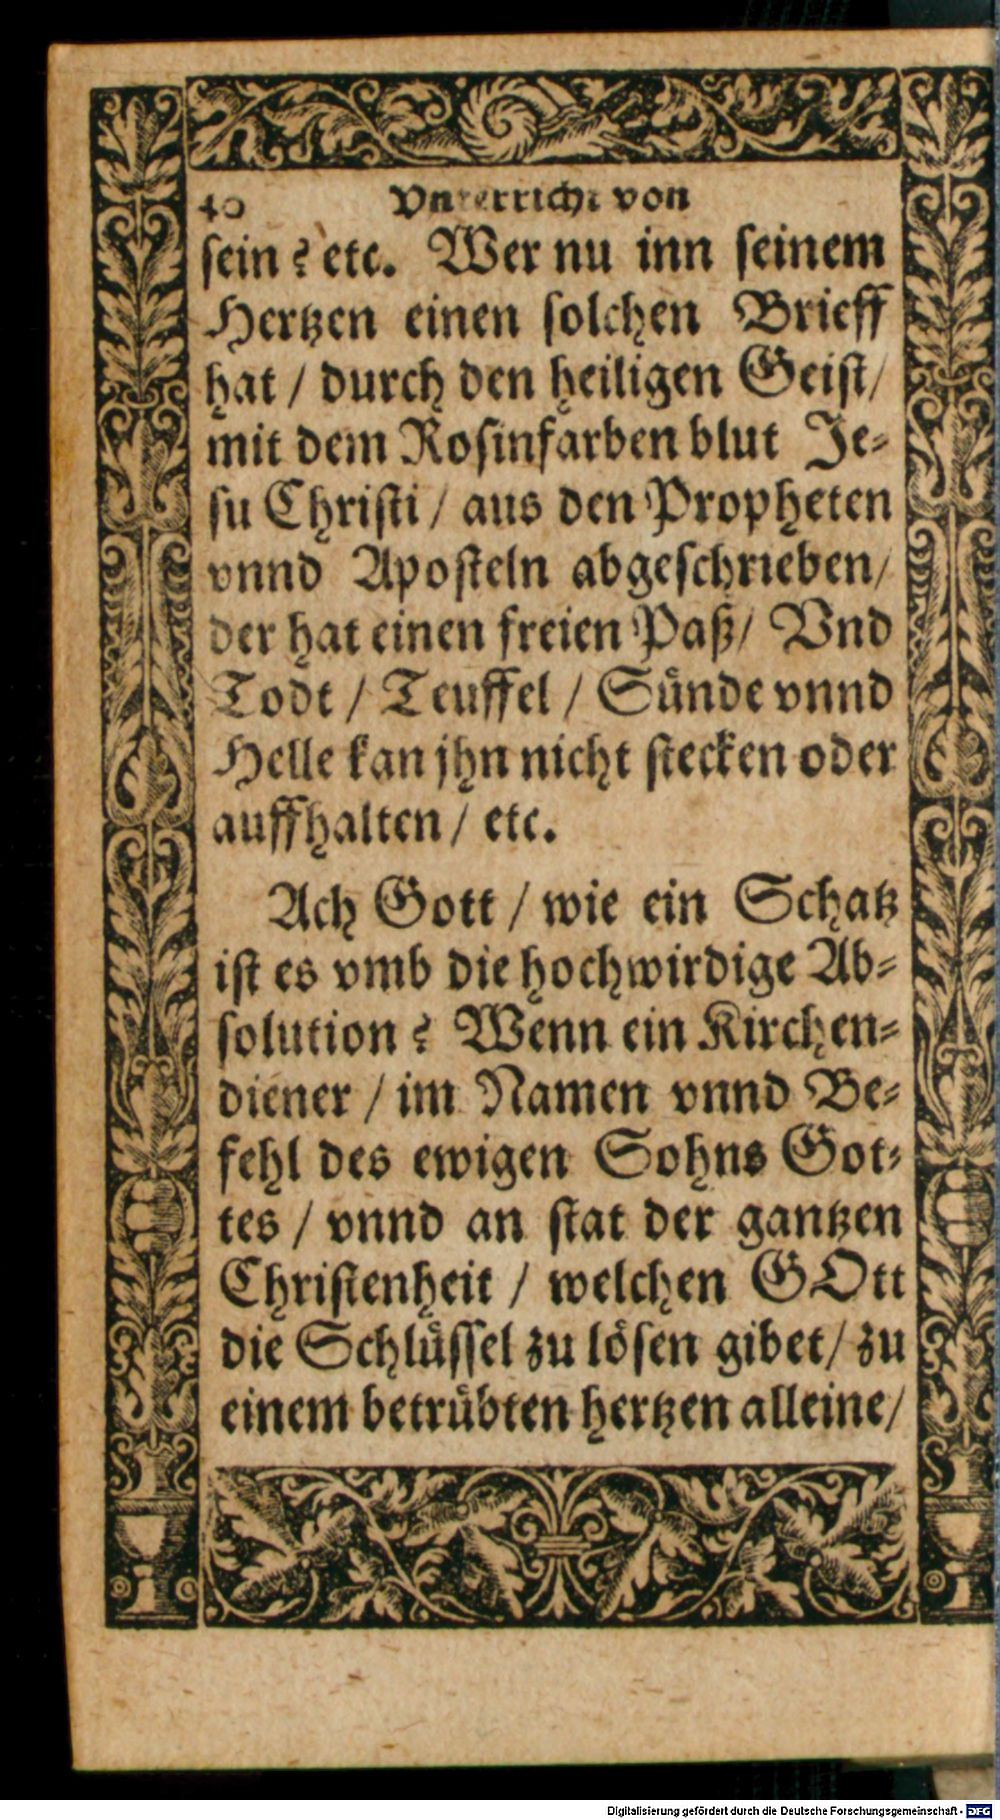 40 Vnterricht von
sein? etc. Wer nu inn seinem
Hertzen einen solchen Brieff
hat / durch den heiligen Geist /
mit dem Rosinfarben blut Je-
su Christi / aus den Propheten
vnnd Aposteln abgeschrieben /
der hat einen freien Paß / Vnd
Todt / Teuffel / Sünde vnnd
Helle kan jhn nicht stecken oder
auffhalten / etc.
Ach Gott / wie ein Schatz
ist es vmb die hochwirdige Ab-
solution? Wenn ein Kirchen-
diener / im Namen vnnd Be-
fehl des ewigen Sohns Got-
tes / vnnd an stat der gantzen
Christenheit / welchen GOtt
die Schlüssel zu lösen gibet / zu
einem betrübten hertzen alleine /
Digitalisierung gefördert durch die Deutsche Forschungsgemeinschaft - DFG